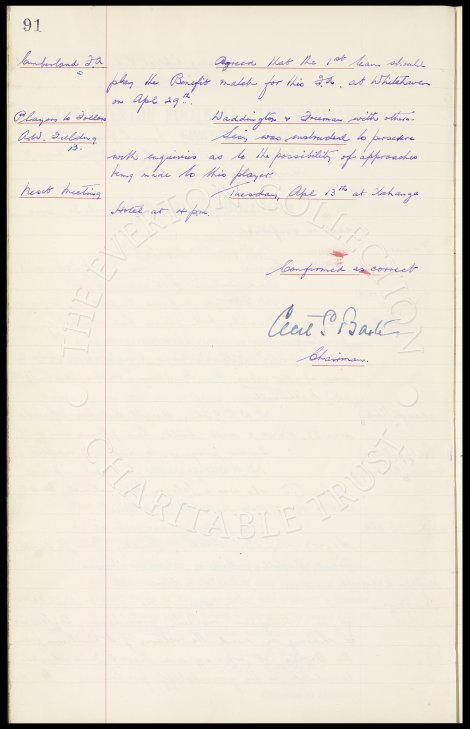 91
Cumberland F.A. Agreed that the 1st team should
play the Benefit match for this F.A. at Whitehaven
on Apl 29th.
Players to Follow Waddington & Freeman with others.
Adv. Fielding Secy was instructed to persevere
B. with enquiries as to the possibility of approaches
being made to this player.
Next Meeting Tuesday, Apl 13th at Exchange
Hotel at 4 pm.
Confirmed as correct
Cecil S Baxter
Chairman.
THE EVERTON COLLECTION
CHARITABLE TRUST